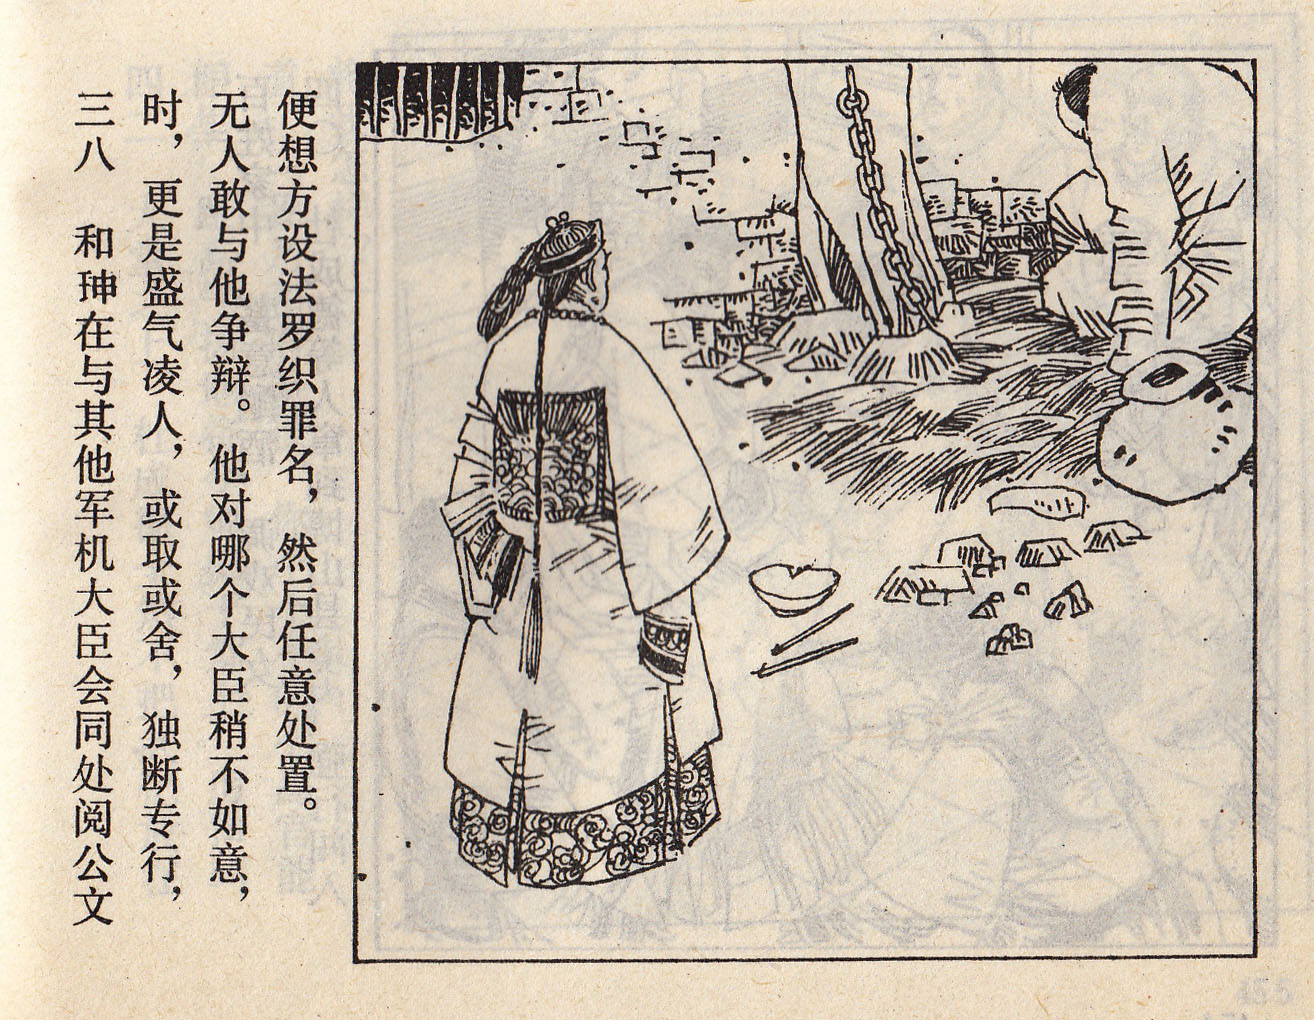 三八 和珅在与其他军机大臣会同处阅公文
时，更是盛气凌人，或取或舍，独断专行，
无人敢与他争辩。他对哪个大臣稍不如意，
便想方设法罗织罪名，然后任意处置。